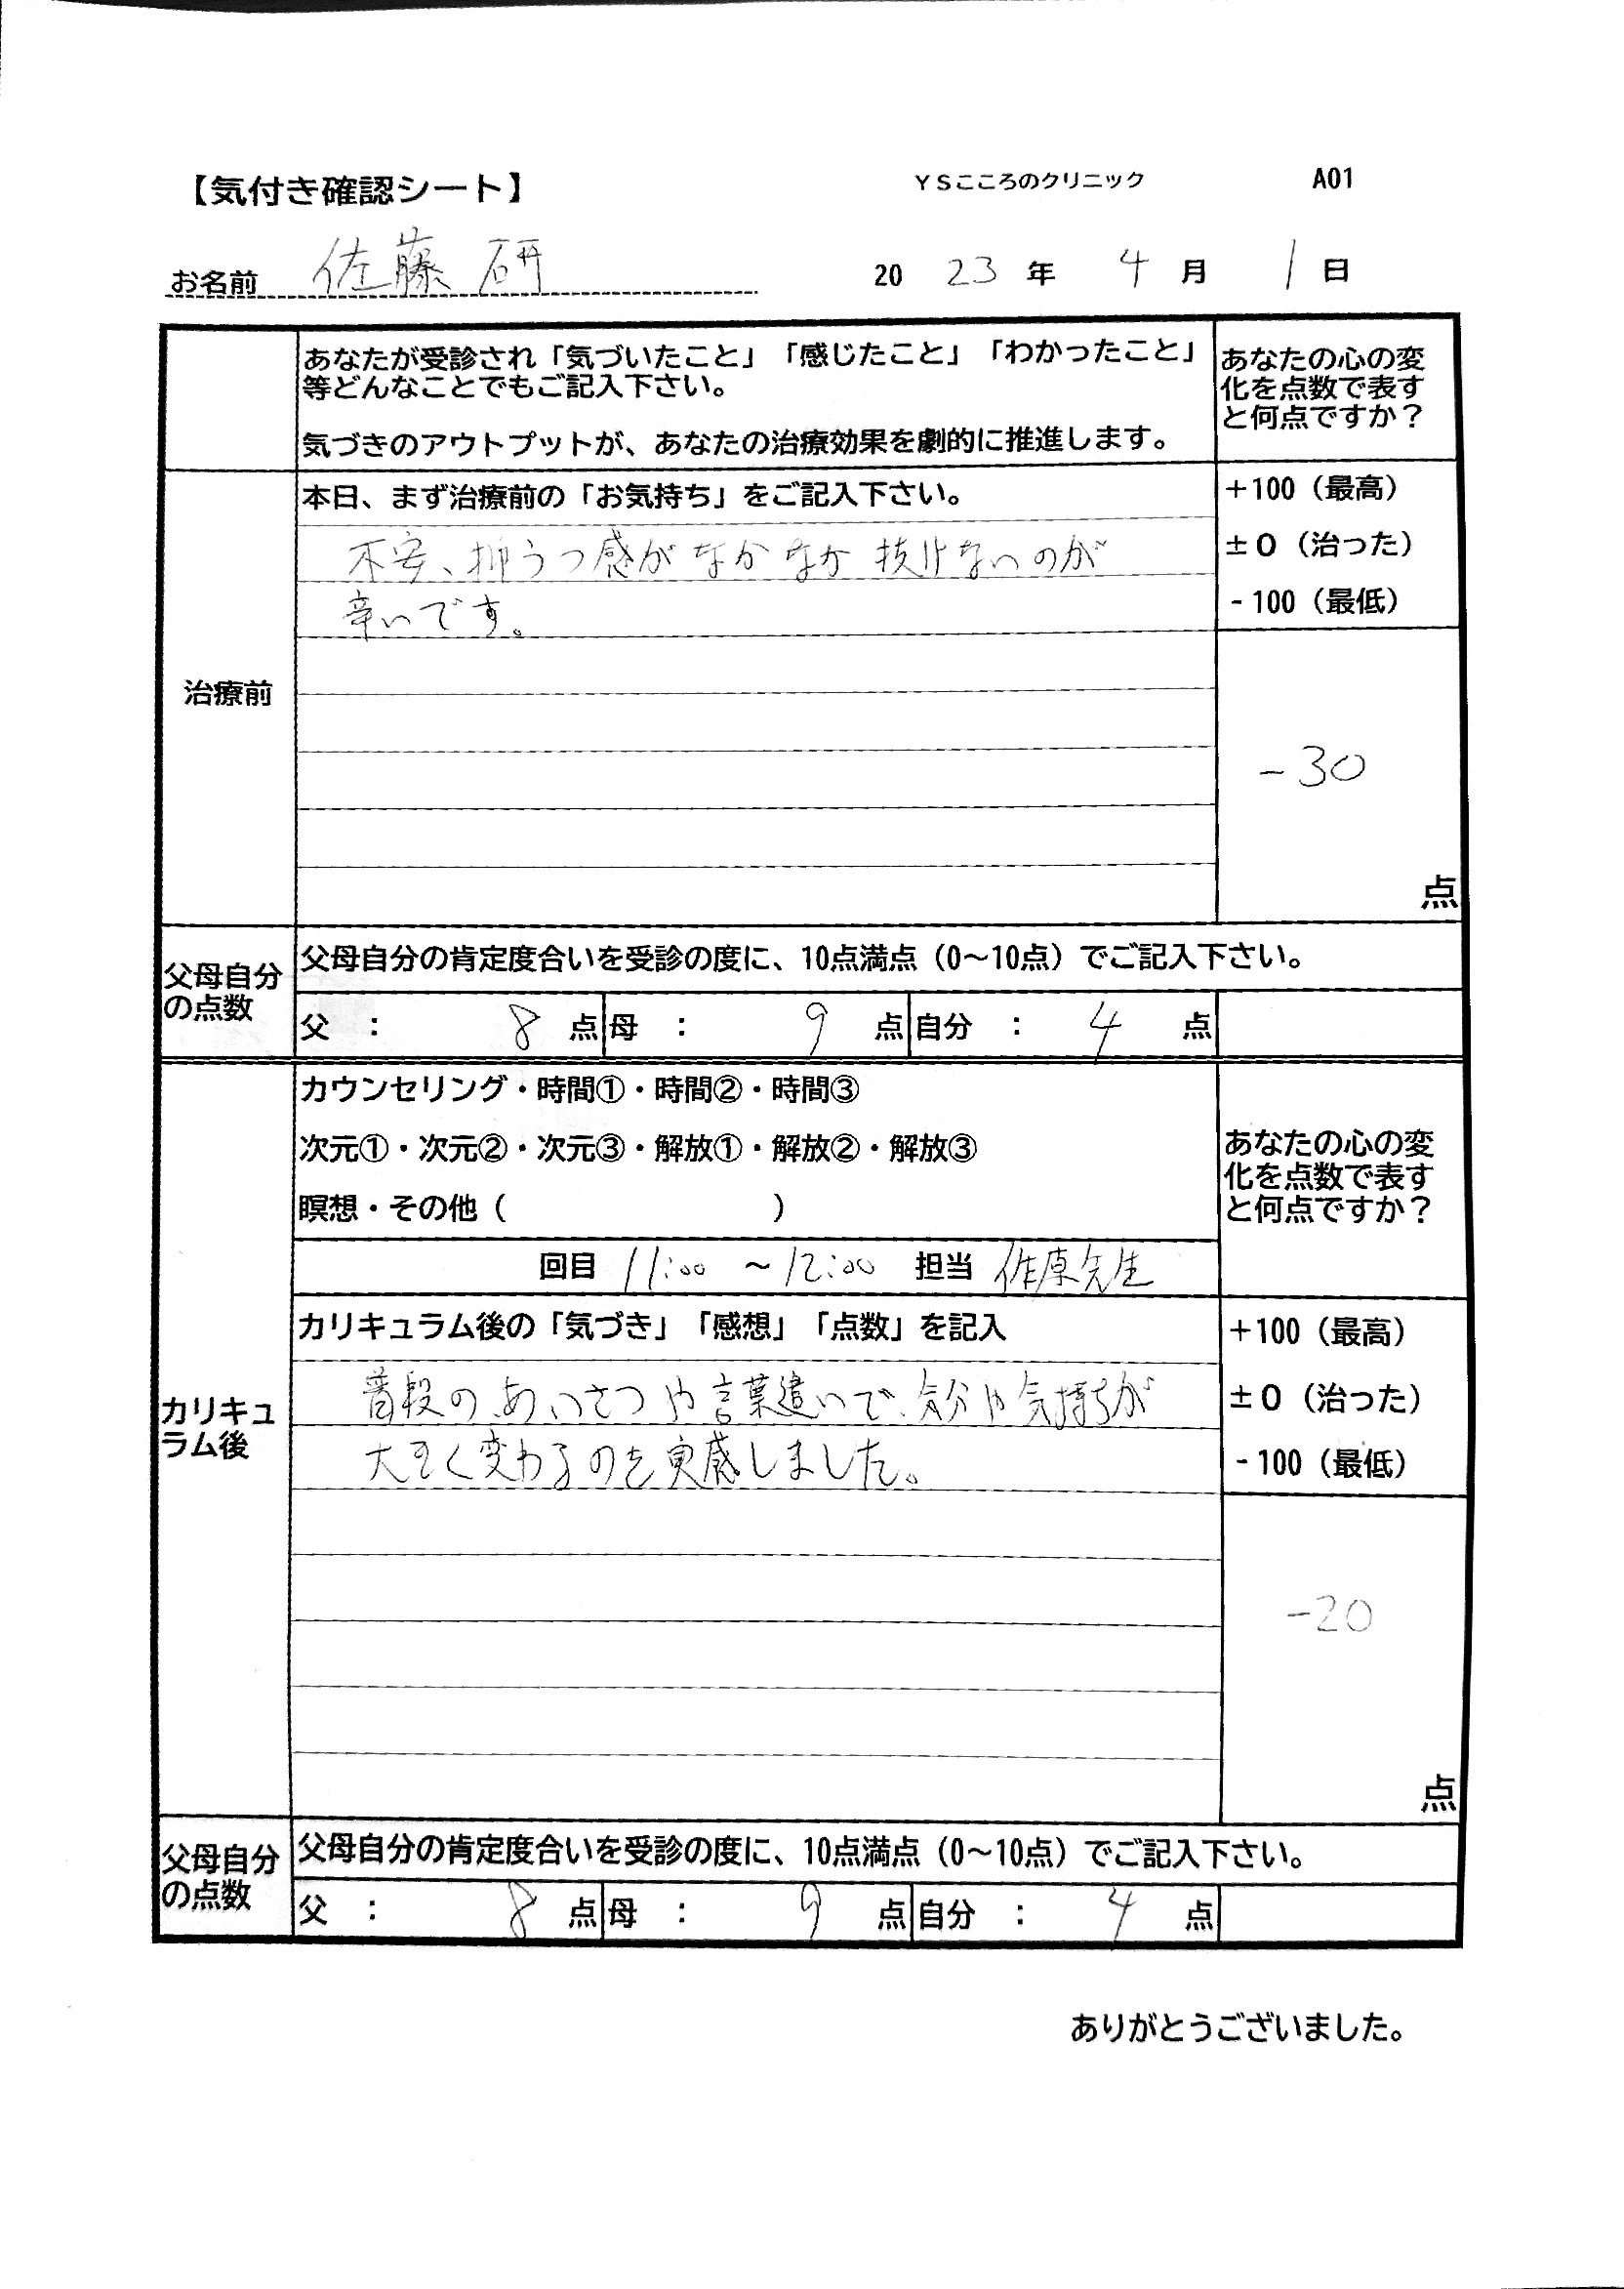 【気付き確認シート】 YSこころのクリニック A01
お名前 佐藤 研 20 23 年 4 月 1 日
あなたが受診され「気づいたこと」「感じたこと」「わかったこと」
等どんなことでもご記入下さい。
気づきのアウトプットが、あなたの治療効果を劇的に推進します。
あなたの心の変
化を点数で表す
と何点ですか？
治療前
本日、まず治療前の「お気持ち」をご記入下さい。
不安、抑うつ感がなかなか抜けないのが
辛いです。
+100（最高）
±0（治った）
-100（最低）
-30
点
父母自分
の点数
父母自分の肯定度合いを受診の度に、10点満点（0～10点）でご記入下さい。
父 ： 8 点 母 ： 9 点 自分 ： 4 点
カリキュ
ラム後
カウンセリング・時間①・時間②・時間③
次元①・次元②・次元③・解放①・解放②・解放③
瞑想・その他（ ）
あなたの心の変
化を点数で表す
と何点ですか？
回目 11:00 ～12:00 担当 作原先生
カリキュラム後の「気づき」「感想」「点数」を記入
普段のあいさつや言葉遣いで、気分や気持ちが
大きく変わるのを実感しました。
+100（最高）
±0（治った）
-100（最低）
-20
点
父母自分
の点数
父母自分の肯定度合いを受診の度に、10点満点（0～10点）でご記入下さい。
父 ： 8 点 母 ： 9 点 自分 ： 4 点
ありがとうございました。